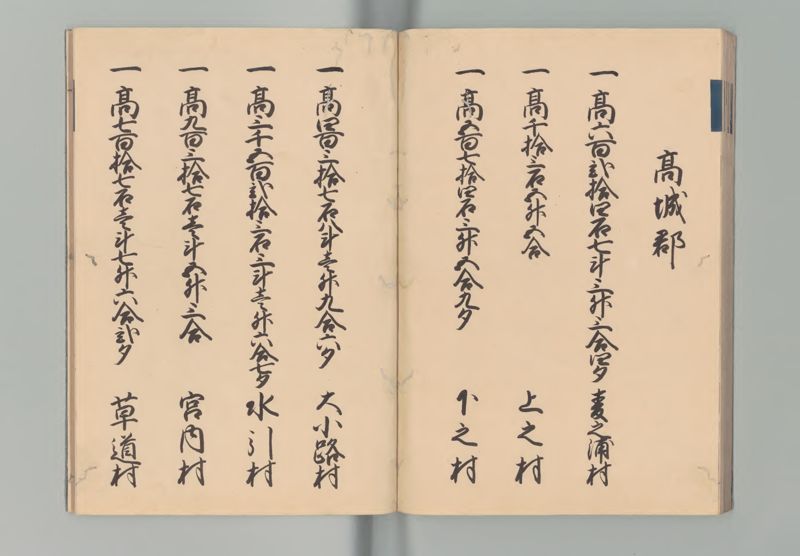 高城郡
一高六百弐拾四石七斗三升三合四夕 麦之浦村
一高千拾三石五升五合 上之村
一高五百七拾四石三升五合九夕 下之村
一高四百三拾七石八斗壱升九合六夕 大小路村
一高三千五百弐拾三石三斗壱升六合七夕 水引村
一高九百三拾七石壱斗五升三合 宮内村
一高七百拾七石壱斗七升六合弐夕 草道村